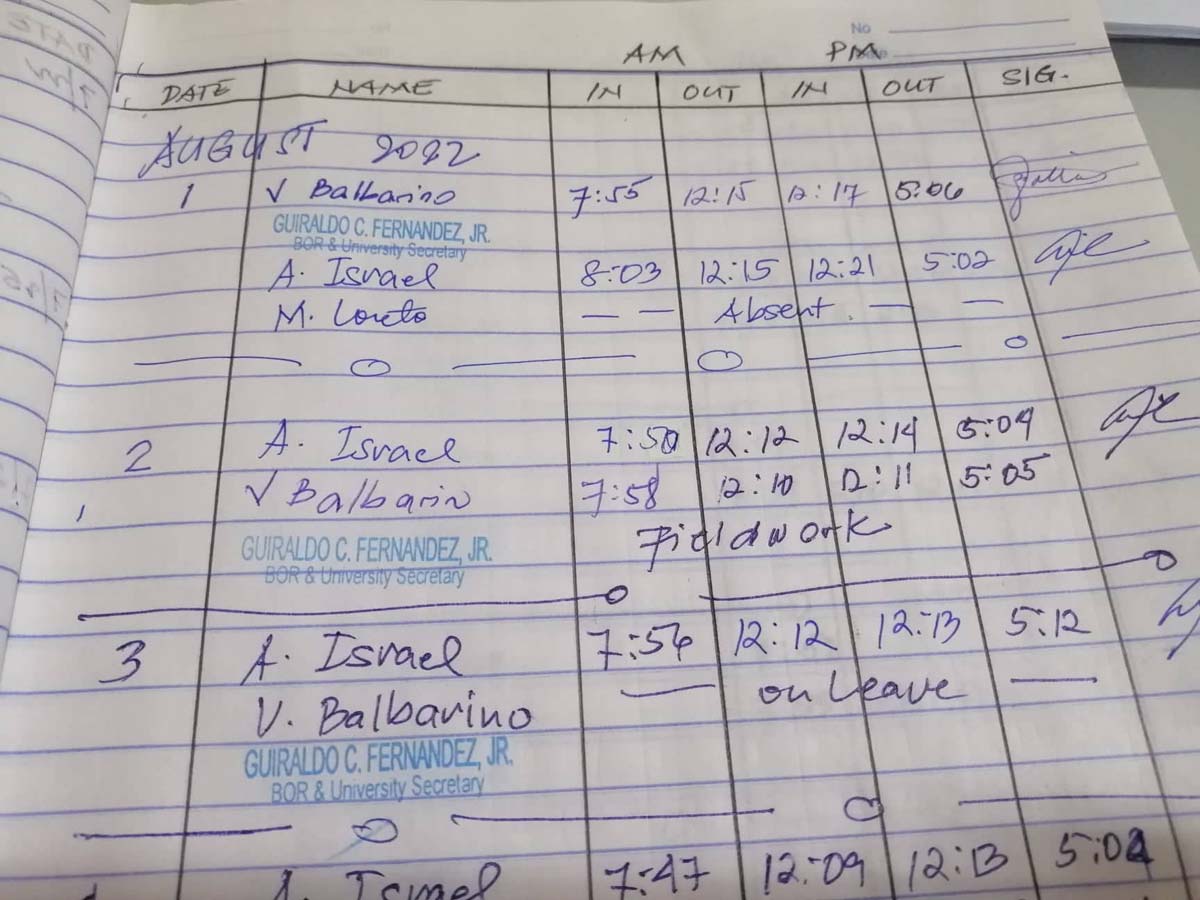 No
AM PM
DATE NAME IN OUT IN OUT SIG.
AUGUST 2022
1 V Balbarino 7:55 12:15 12:17 5:06
GUIRALDO C. FERNANDEZ, JR.
BOR & University Secretary
A. Israel 8:03 12:15 12:21 5:02
M. Loreto — — Absent. — —
2 A. Israel 7:50 12:12 12:14 5:04
V Balbarin 7:58 12:10 12:11 5:05
GUIRALDO C. FERNANDEZ, JR. Fieldwork
BOR & University Secretary
3 A. Israel 7:56 12:12 12:13 5:12
V. Balbarino — on Leave —
GUIRALDO C. FERNANDEZ, JR.
BOR & University Secretary
A. Israel 7:47 12:09 12:13 5:02